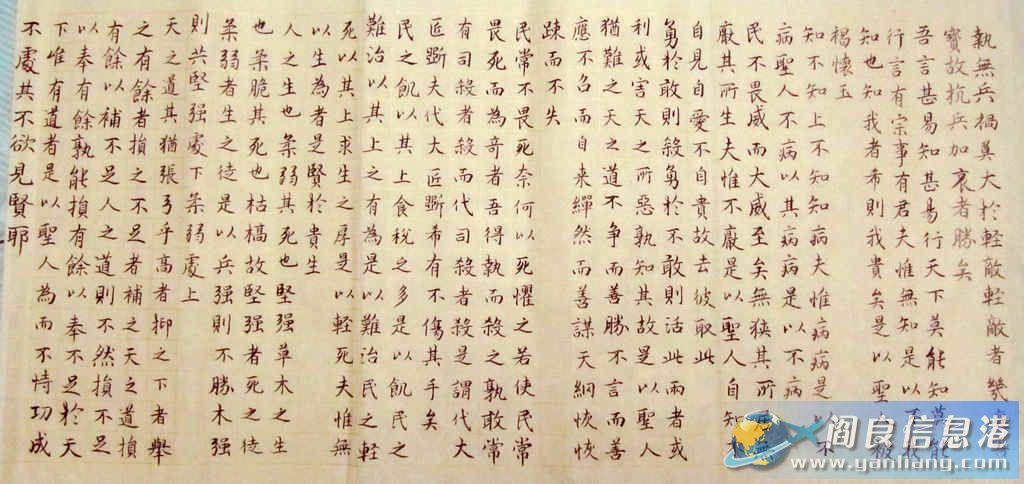 執無兵禍莫大於輕敵輕敵者幾
寶故抗兵加哀者勝矣
吾言甚易知甚易行天下莫能知莫能
行言有宗事有君夫惟無知是以不我
知也知我者希則我貴矣是以聖被
褐懷玉
知不知上不知知病夫惟病病是以不
病聖人不病以其病病是以不病
民不畏威而大威至矣無狹其所無
厭其所生夫惟不厭是以聖人自知
自見自愛不自貴故去彼取此
勇於敢則殺勇於不敢則活此兩者或
利或害天之所惡孰知其故是以聖人
猶難之天之道不爭而善勝不言而善
應不召而自来繟然而善謀天網恢恢
疎而不失
民常不畏死奈何以死懼之若使民常
畏死而為奇者吾得執而殺之孰敢常
有司殺者殺而代司殺者殺是謂代大
匠斲夫代大匠斲希有不傷其手矣
民之飢以其上食稅之多是以飢民之
難治以其上之有為是以難治民之輕
死以其上求生之厚是以輕死夫惟無
以生為者是賢於貴生
人之生也柔弱其死也堅强草木之生
也柔脆其死也枯槁故堅强者死之徒
柔弱者生之徒是以兵强則不勝木强
則共堅强處下柔弱處上
天之道其猶張弓乎高者抑之下者舉
之有餘者損之不足者補之天之道損
有餘以補不足人之道則不然損不足
以奉有餘孰能損有餘以奉不足於天
下唯有道者是以聖人為而不恃功成
不處其不欲見賢耶
阎良信息港
www.yanliang.com